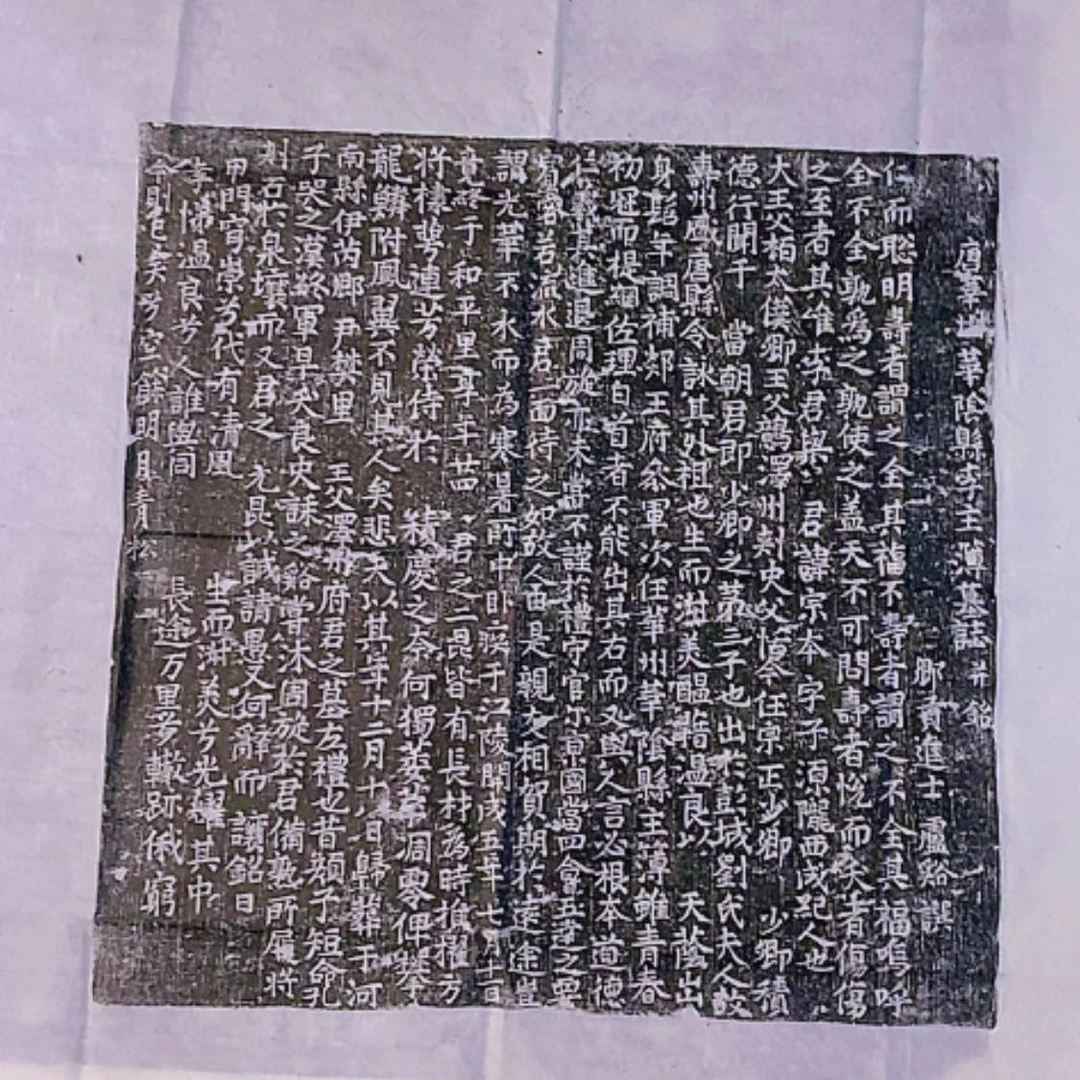 唐華州華陰縣李主簿墓誌并銘
鄉貢進士盧谿譔
仁而聰明壽者謂之全其福不壽者謂之不全其福嗚呼
全不全孰為之孰使之盖天不可問壽者悅而夭者傷傷
之至者其唯李君與君諱宗本字子源隴西成紀人也
大王父栢太僕卿王父鷸澤州刾史父 今任宗正少卿少卿積
德行聞于當朝君即少卿之第三子也出於彭城劉氏夫人故
壽州盛唐縣令詠其外祖也生而淑美醖藉温良以天蔭出
身髫年調補郯王府叅軍次任華州華陰縣主薄雖青春
初冠而提綱佐理白首者不能出其右而又與人言必根本道德
仁 其進退周旋亦未嘗不謹於禮守官 京國當四會五 之要
賓 君 水君一面待之如故人由是親友相賀期於遠途豈
謂光華不永而為寒暑所中 疾于江陵開成五年七月十一日
竟終于和平里享年廿四君之二昆皆有長材為時推擢方
將棣萼連芳榮侍於積慶之 奈何獨萎華凋零俾攀
龍鱗附鳳翼不見其人矣悲夫以其年十二月十八日歸葬于河
南縣伊芮鄉尹樊里王父澤州府君之墓左禮也昔顏子短命孔
子哭之漢終軍早夭良史誄之谿嘗沐周旋於君備熟所履將
刻石於泉壤而又君之元昆以誠請愚又何辭而讓銘曰
甲門 崇芳代有清風生而淑美芳光耀其中
孝悌温良芳人誰與同長途万里芳 跡俄窮
今則已矣芳空餘明月青松